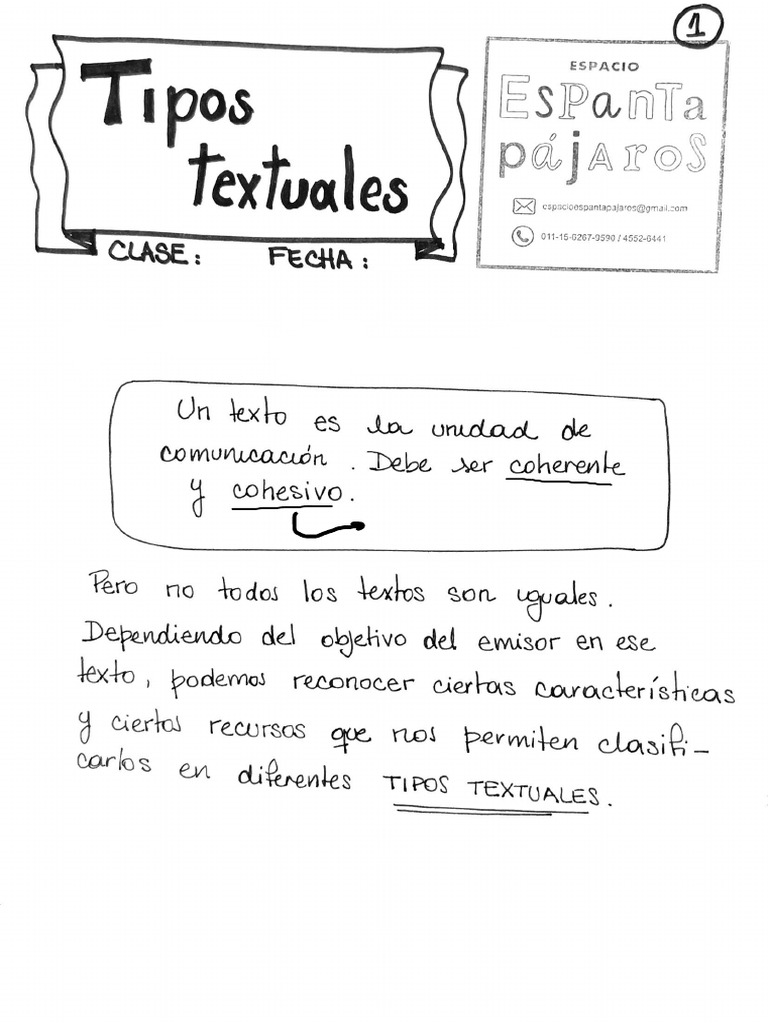 1
Tipos
textuales
CLASE: FECHA:
ESPACIO
EsPanTa
pájAroS
espacioespantapajaros@gmail.com
011-15-6267-9590 / 4552-6441
Un texto es la unidad de
comunicación. Debe ser coherente
y cohesivo.
Pero no todos los textos son iguales.
Dependiendo del objetivo del emisor en ese
texto, podemos reconocer ciertas características
y ciertos recursos que nos permiten clasifi-
carlos en diferentes TIPOS TEXTUALES.